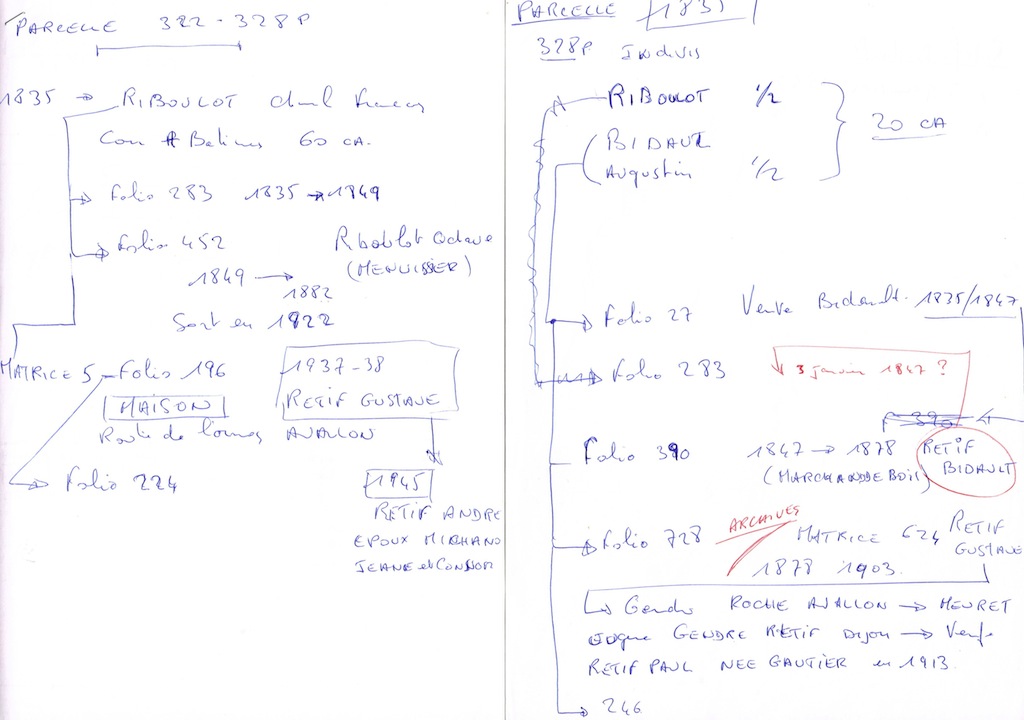 PARCELLE 322-328P
1835 → RIBOULOT
Cour Batimes 60 CA.
Folio 283 1835 → 1849
Folio 452 Riboulot Octave
(MENUISIER)
1849 → 1882
Sort en 1922
MATRICE 5 - Folio 196 1937-38
MAISON RETIF GUSTAVE
Route de Tormes AVALLON
Folio 224 1945
RETIF ANDRE
EPOUX MICHAND
JEANE
PARCELLE 1835
328P Indivis
RIBOULOT 1/2
BIDAULT
Augustin 1/2
20 CA
Folio 27 Vente Bidault. 1835/1847
Folio 283 3 janvier 1847 ?
F 390
Folio 390 1847 → 1878 RETIF
(MARCHAND DE BOIS) BIDAULT
Folio 728 ARCHIVES MATRICE 624 RETIF
GUSTAVE
1878 1903.
Gendre ROCHE AVALLON → MEURET
GENDRE RETIF Dijon →
RETIF PAUL NEE GAUTIER en 1913.
246